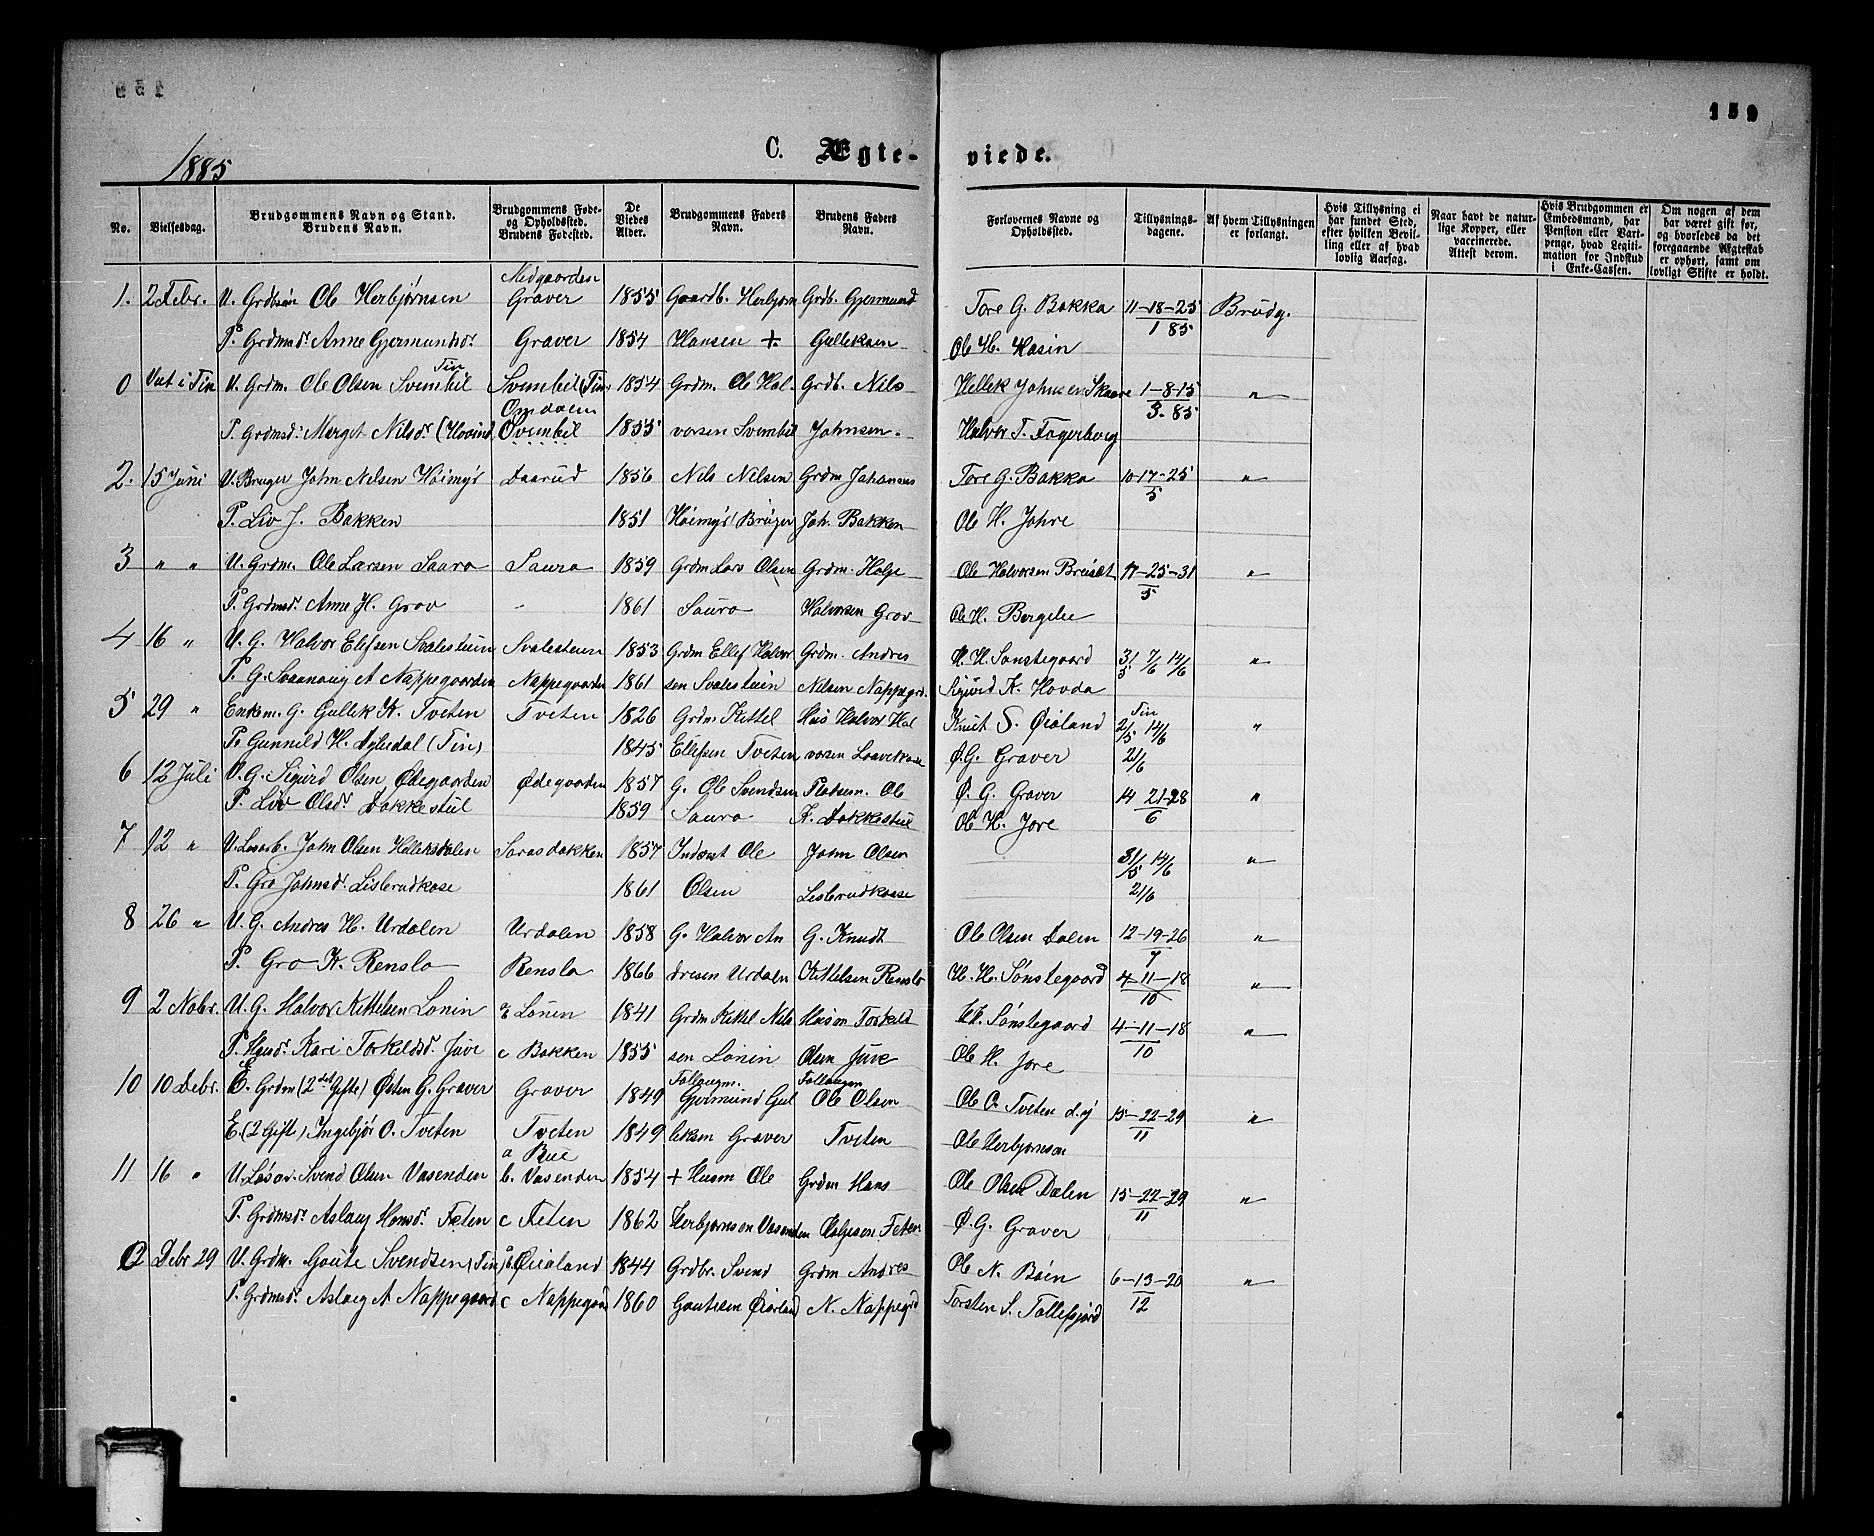 159
1885
C. Ægte-viede.
No.
Vielsesdag.
Brudgommens Navn og Stand.
Brudens Navn.
Brudgommens Føde-
og Opholdssted.
Brudens Fødested.
De
Viedes
Alder.
Brudgommens Faders
Navn.
Brudens Faders
Navn.
Forlovernes Navne og
Opholdssted.
Tillysnings-
dagene.
Af hvem Tillysningen
er forlangt.
Hvis Tillysning ei
har fundet Sted,
efter hvilken Bevil-
ling eller af hvad
lovlig Aarsag.
Naar havt de natur-
lige Kopper, eller
vaccinerede.
Attest derom.
Hvis Brudgommen er
Embedsmand, har
Pension eller Vart-
penge, hvad Legiti-
mation for Indskud
i Enke-Cassen.
Om nogen af dem
har været gift før,
og hvorledes da det
foregaaende Ægteskab
er ophørt, samt om
lovligt Skifte er holdt.
Nedgaarden
1. 2 Febr. U. Grdsøn Ole Herbjørnsen Graver 1855 Gaardb. Herbjørn Grdb. Gjermund Tore G. Bakka 11-18-25 Brudg.
P. Grdmsdr Anne Gjermundsdr Graver 1854 Hansen + Gulleksen Ole H. Hasin 1 85
Tin
0 Viet i Tin U. Grdm. Ole Olsen Svimbil Svimbil (Tin) 1854 Grdm. Ole Hal- Grdb. Nils Hellek Johnsen Skaare 1-8-15 "
Omdalen
P. Grdmsdr Marget Nilsdr (Hovind) Svimbil 1855 vorsen Svimbil Johnsen. Halvor T. Fagerberg 3. 85
2. 15 Juni U. Bruger John Nilsen Høimyr Daarud 1856 Nils Nilsen Grdm Johannes Tore G. Bakka 10-17-25 "
P. Liv J. Bakken 1851 Høimyr Bruger Joh. Bakken Ole H. Johre 5
3 " " U. Grdm. Ole Larsen Saura Saura 1859 Grdm Lars Olsen Grdm. Holje Ole Halvorsen 17-25-31 "
P. Grdmsdr. Anne H. Grov 1861 Saura Halvorsen Grov Ole H. Bergelie 5
4 16 " U. G. Halvor Elifsen Svalestuen Svalesteun 1853 Grdm Ellef Halvor Grdm. Andres H. H. Sønstegaard 31/5 7/6 14/6 "
P. G. Svanaug A Nappegaarden Nappegaarden 1861 sen Svalestuin Nilsen Nappegrd. Sigurd K. Hovda
5 29 " Enkem. G. Gullek K. Tveten Tveten 1826 Grdm Kittel Hus Halvor Hal Knut S. Øiøland Tin 2/5 14/6 "
Pe Gunnild H. (Tin) 1845 Ellefsen Tveten vorsen Ø. G. Graver 21/6
6 12 Juli U. G. Sigurd Olsen Ødegaarden Ødegaarden 1857 G. Ole Svendsen Pladsm. Ole Ø. G. Graver 14 21-28 "
P. Liv Olsdr Dokkestul 1859 Saura K. Dokkestul Ole H. Jore 6
7 12 " U. Løsarb. John Olsen Sarasdokken 1857 Inderst Ole John Olsen 31/5 14/6 "
P. Gro Johnsdr. Lislerudkase 1861 Olsen Lislerudkaase 21/6
8 26 " U. G. Andres H. Urdalen Urdalen 1858 G. Halvor An G. Knudt Ole Olsen Dalen 12-19-26 "
P. Gro K. Rensla Rensla 1866 dresen Urdalen Kittelsen Rensla H. H. Sønstegaard 7 4-11-18 10 "
9 2 Nobr. U. G. Halvor Kittelsen Lonin Lonin 1841 Grdm Kittel Nils Husm Torkeld H. Sønstegaard 4-11-18 "
P. Husdr. Kari Torkeldsdr. Juve c Bakken 1855 sen Lonin Olsen Juve Ole H. Jore 10
Follaugm. Follaugm
10 10 Debr. E. Grdm (2det Gifte) Østen G. Graver Graver 1849 Gjermund Gul Ole Olsen Ole O. Tveten d.y 15-22-29 "
E. (2 Gift) Ingebjør O. Tveten Tveten 1849 leksen Graver Tveten Ole Herbjørnson 11
a Bue
11 16 " U. Løsar. Svend Olsen Vasenden b. Vasenden 1854 + Husm Ole Grdm Hans Ole Olsen Dalen 15-22-29 "
P. Grdmsdr. Aslaug Hansdr. Feten c Feten 1862 Herbjørnson Vasenden Holjeson Feten Ø. G. Graver 11
0 Debr 29 U. Grdm. Goute Svendsen (Tin) Øiøland 1844 Grdbr. Svend Grdm Andres Ole N. Bøen 6-13-20 "
P. Grdmsdr. Aslaug A Nappegaard c Nappegaard 1860 Goutesen Øiøland N. Nappegrd Torsten S. Tollefsjord 12